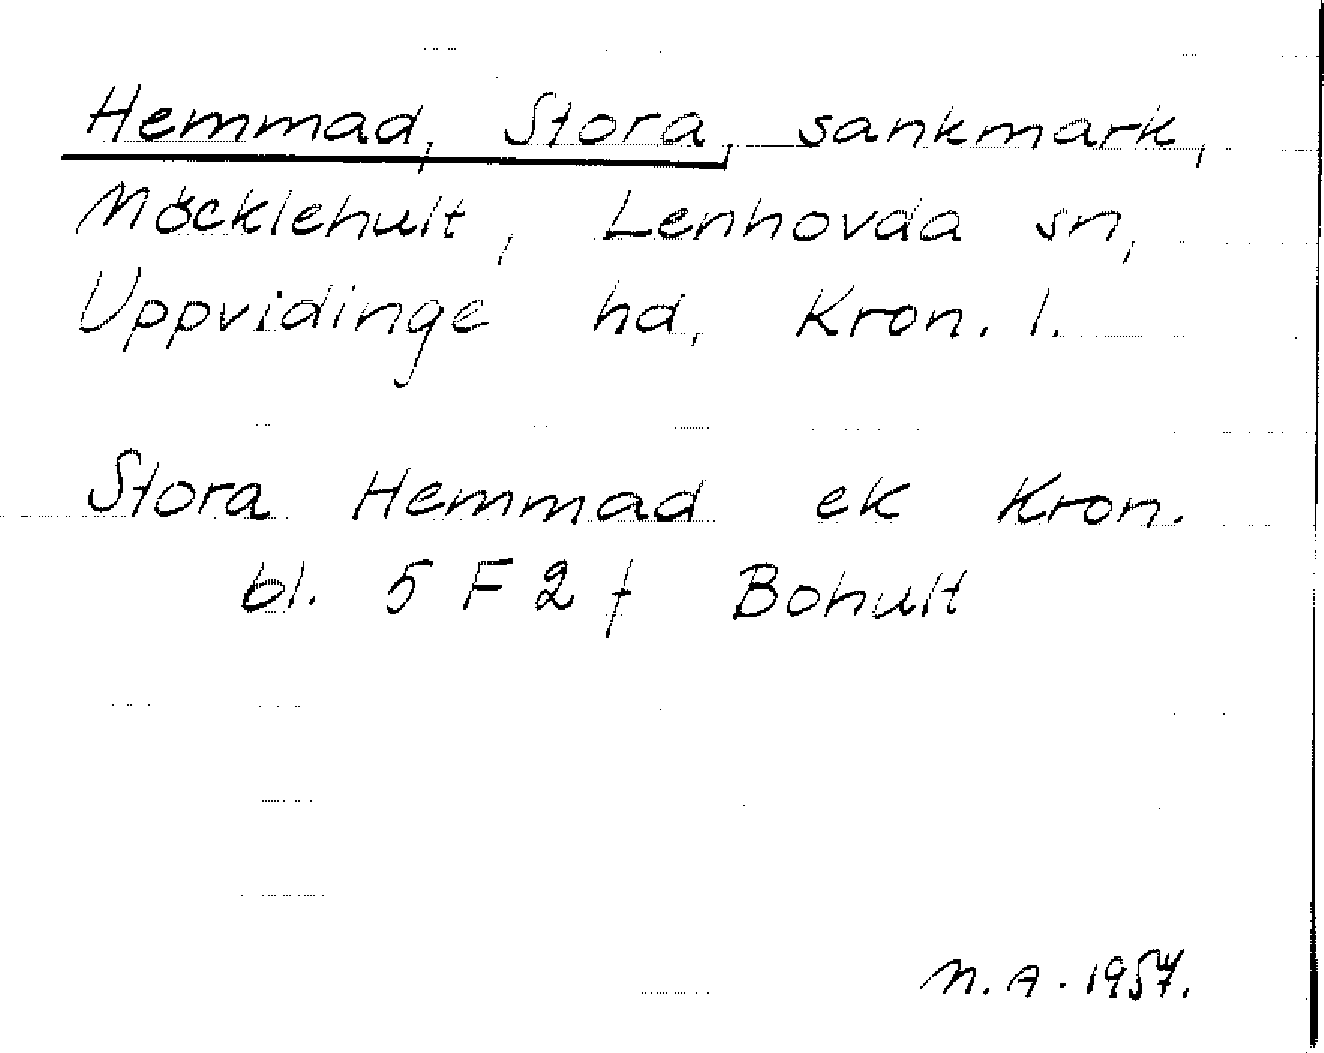 Hemmad, Stora, sankmark,
Möcklehult, Lenhovda sn,
Uppvidinge hd, Kron. l.
Stora Hemmad ek Kron.
bl. 5 F 2 f Bohult
M. A. 1957.